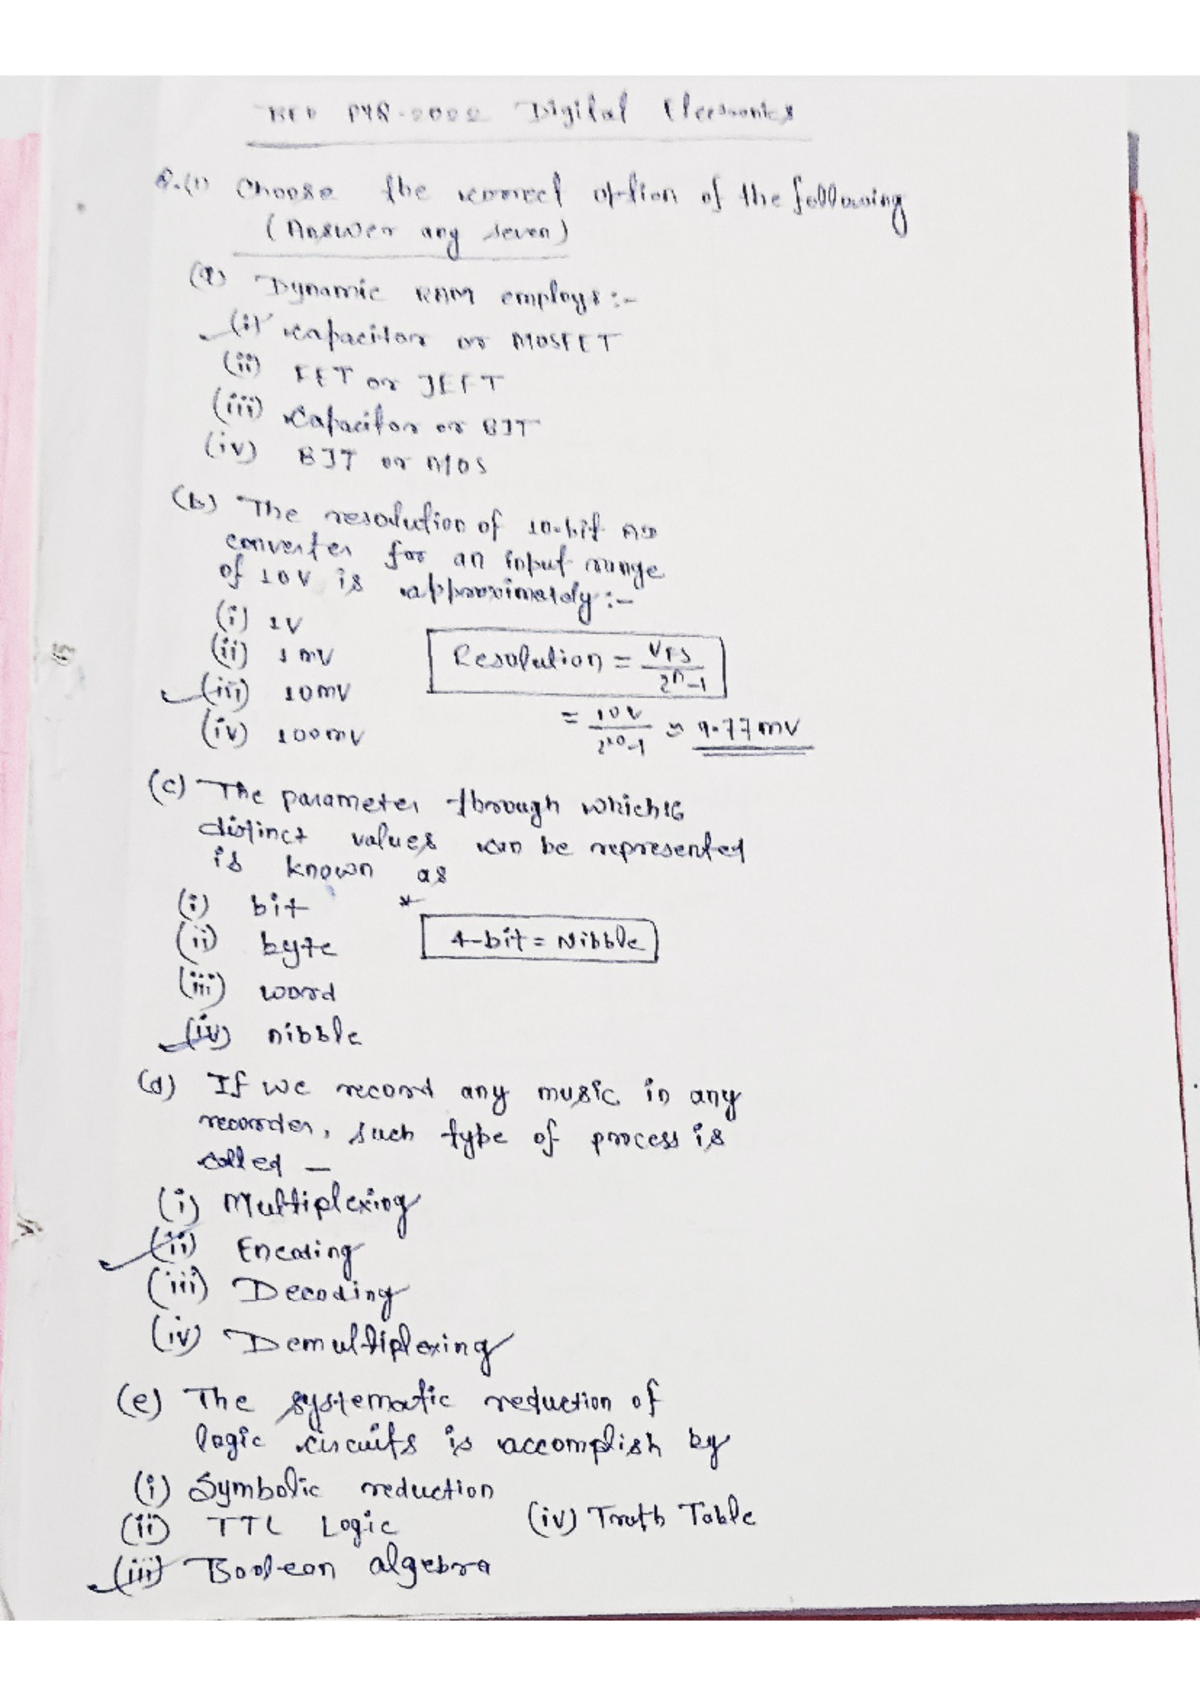 BEU PYQ-2022 Digital Electronics
Q.(1) Choose the correct option of the following
(Answer any seven)
(a) Dynamic RAM employs:-
(i) capacitor or MOSFET
(ii) FET or JEFT
(iii) Capacitor or BJT
(iv) BJT or MOS
(b) The resolution of 10-bit AD
converter for an input range
of 10V is approximately:-
(i) 1V
(ii) 1mV
(iii) 10mV
(iv) 100mV
Resolution = VFS / 2^n-1
= 10V / 2^10-1 ≈ 9.77mV
(c) The parameter through which 16
distinct values can be represented
is known as
(i) bit
(ii) byte
(iii) word
(iv) nibble
* 4-bit = Nibble
(d) If we record any music in any
recorder, such type of process is
called –
(i) Multiplexing
(ii) Encoding
(iii) Decoding
(iv) Demultiplexing
(e) The systematic reduction of
logic circuits is accomplish by
(i) Symbolic reduction
(ii) TTL Logic (iv) Truth Table
(iii) Boolean algebra